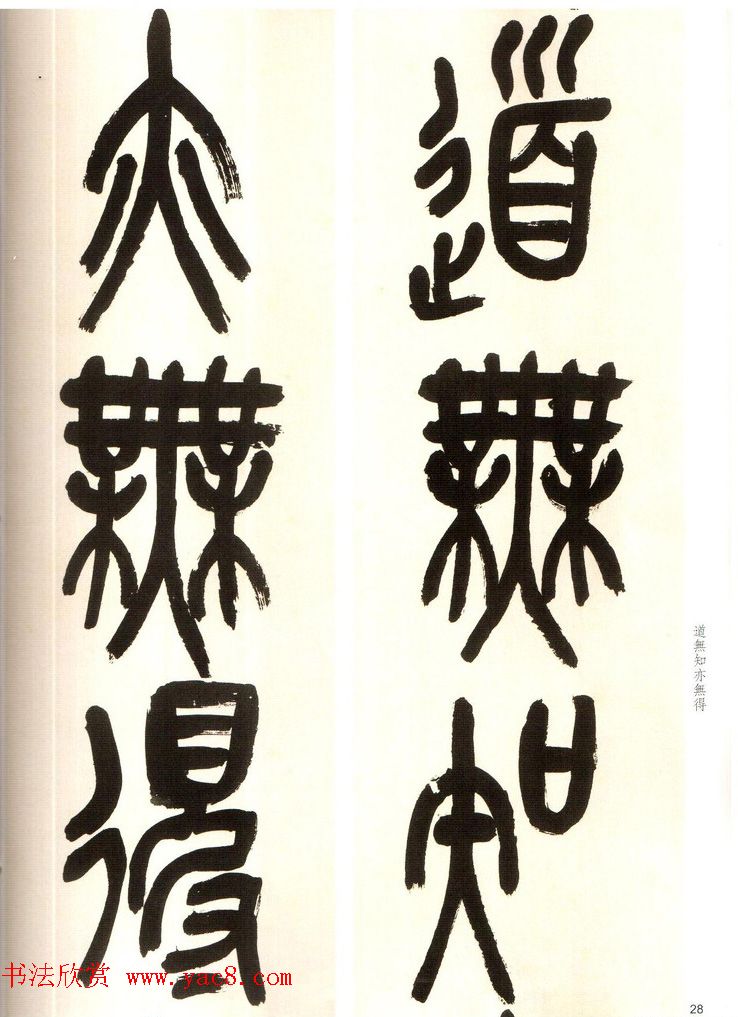 道無知
亦無得
道無知亦無得
书法欣赏 www.yac8.com
28